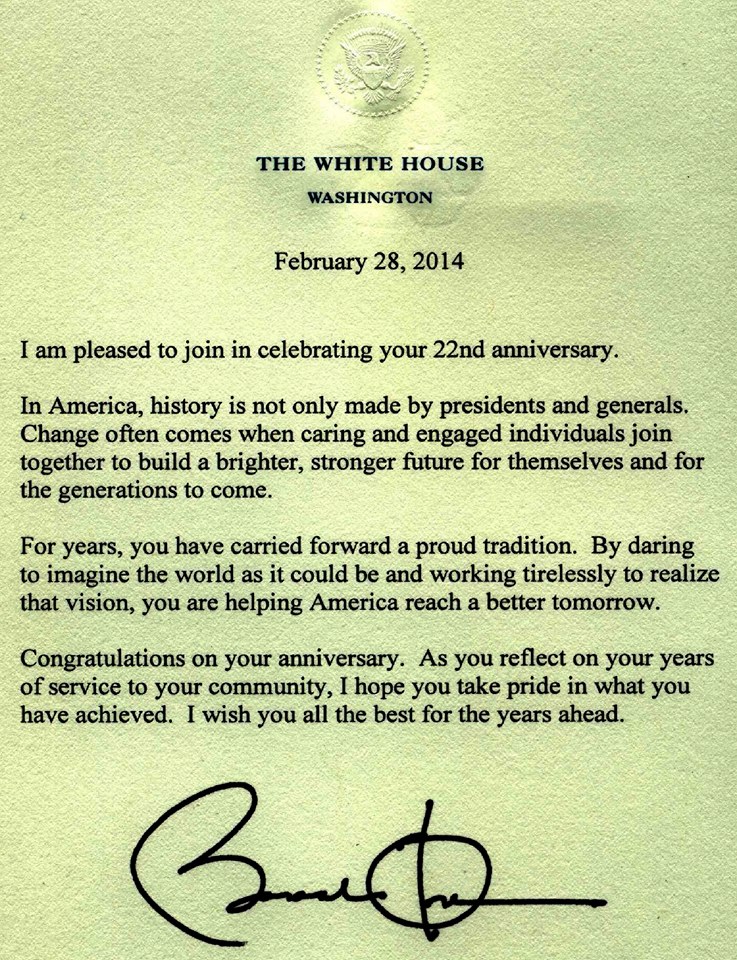 THE WHITE HOUSE
WASHINGTON
February 28, 2014
I am pleased to join in celebrating your 22nd anniversary.
In America, history is not only made by presidents and generals.
Change often comes when caring and engaged individuals join
together to build a brighter, stronger future for themselves and for
the generations to come.
For years, you have carried forward a proud tradition.  By daring
to imagine the world as it could be and working tirelessly to realize
that vision, you are helping America reach a better tomorrow.
Congratulations on your anniversary.  As you reflect on your years
of service to your community, I hope you take pride in what you
have achieved.  I wish you all the best for the years ahead.